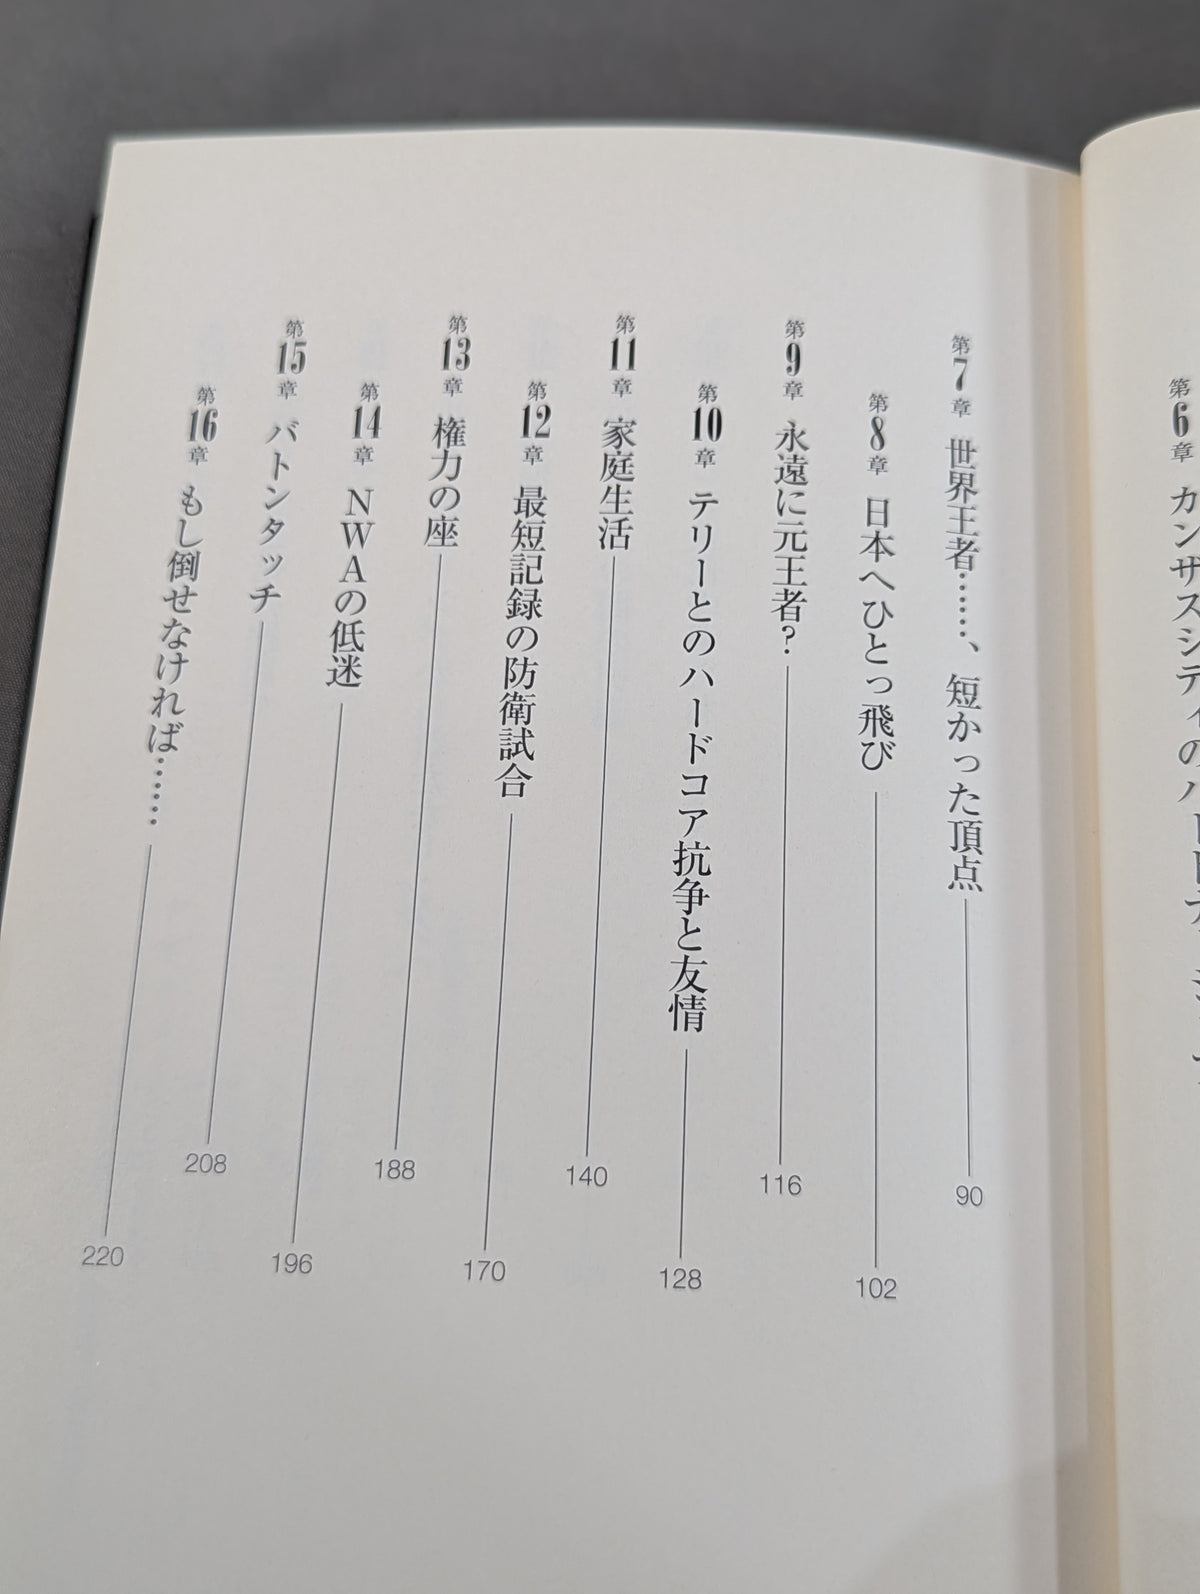 第6章 カンザスシティの
第7章 世界王者……、短かった頂点 90
第8章 日本へひとっ飛び 102
第9章 永遠に元王者？ 116
第10章 テリーとのハードコア抗争と友情 128
第11章 家庭生活 140
第12章 最短記録の防衛試合 170
第13章 権力の座 188
第14章 NWAの低迷 196
第15章 バトンタッチ 208
第16章 もし倒せなければ…… 220